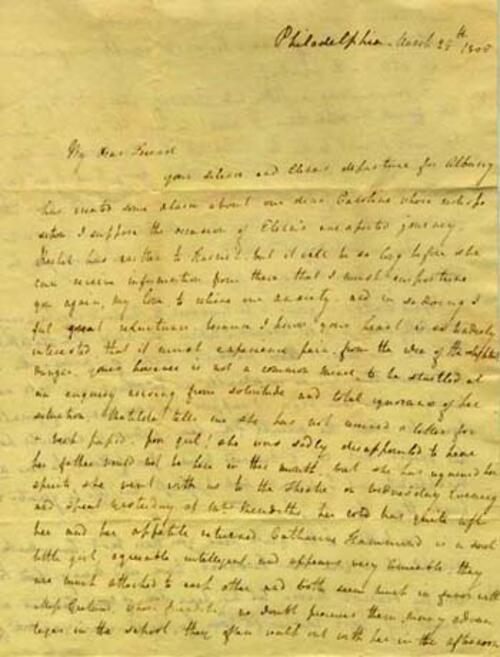 Philadelphia March 25th 1808
My dear Friend
your silence and Eliza's departure for Albany
has created some alarm about our dear Caroline, whose
I suppose the occasion of Eliza's unexpected journey.
has written to but it will be so long before she
can receive information from them, that I must importune
you again, my love to relieve our anxiety, and in so doing I
feel great reluctance because I know your heart is so tenderly
interested that it must experience pain from the idea of the slightest
danger. yours however is not a common mind, to be startled at
an enquiry arising from solicitude and total ignorance of her
situation. Matilda tells me she has not received a letter for
a week past. poor girl! she was sadly disappointed to hear
her father would not be here in this month, but she has regained her
spirits, she went with us to the theatre on Wednesday Evening
and spent yesterday at her cold has quite left
her and her appetite returned. Catharine Hammond is a sweet
little girl, agreeable intelligent and appears very amiable. they
are much attached to each other, and both seem much in favor with
Miss whose no doubt procures them many advan
tages in the school. they often walk out with her in the afternoon